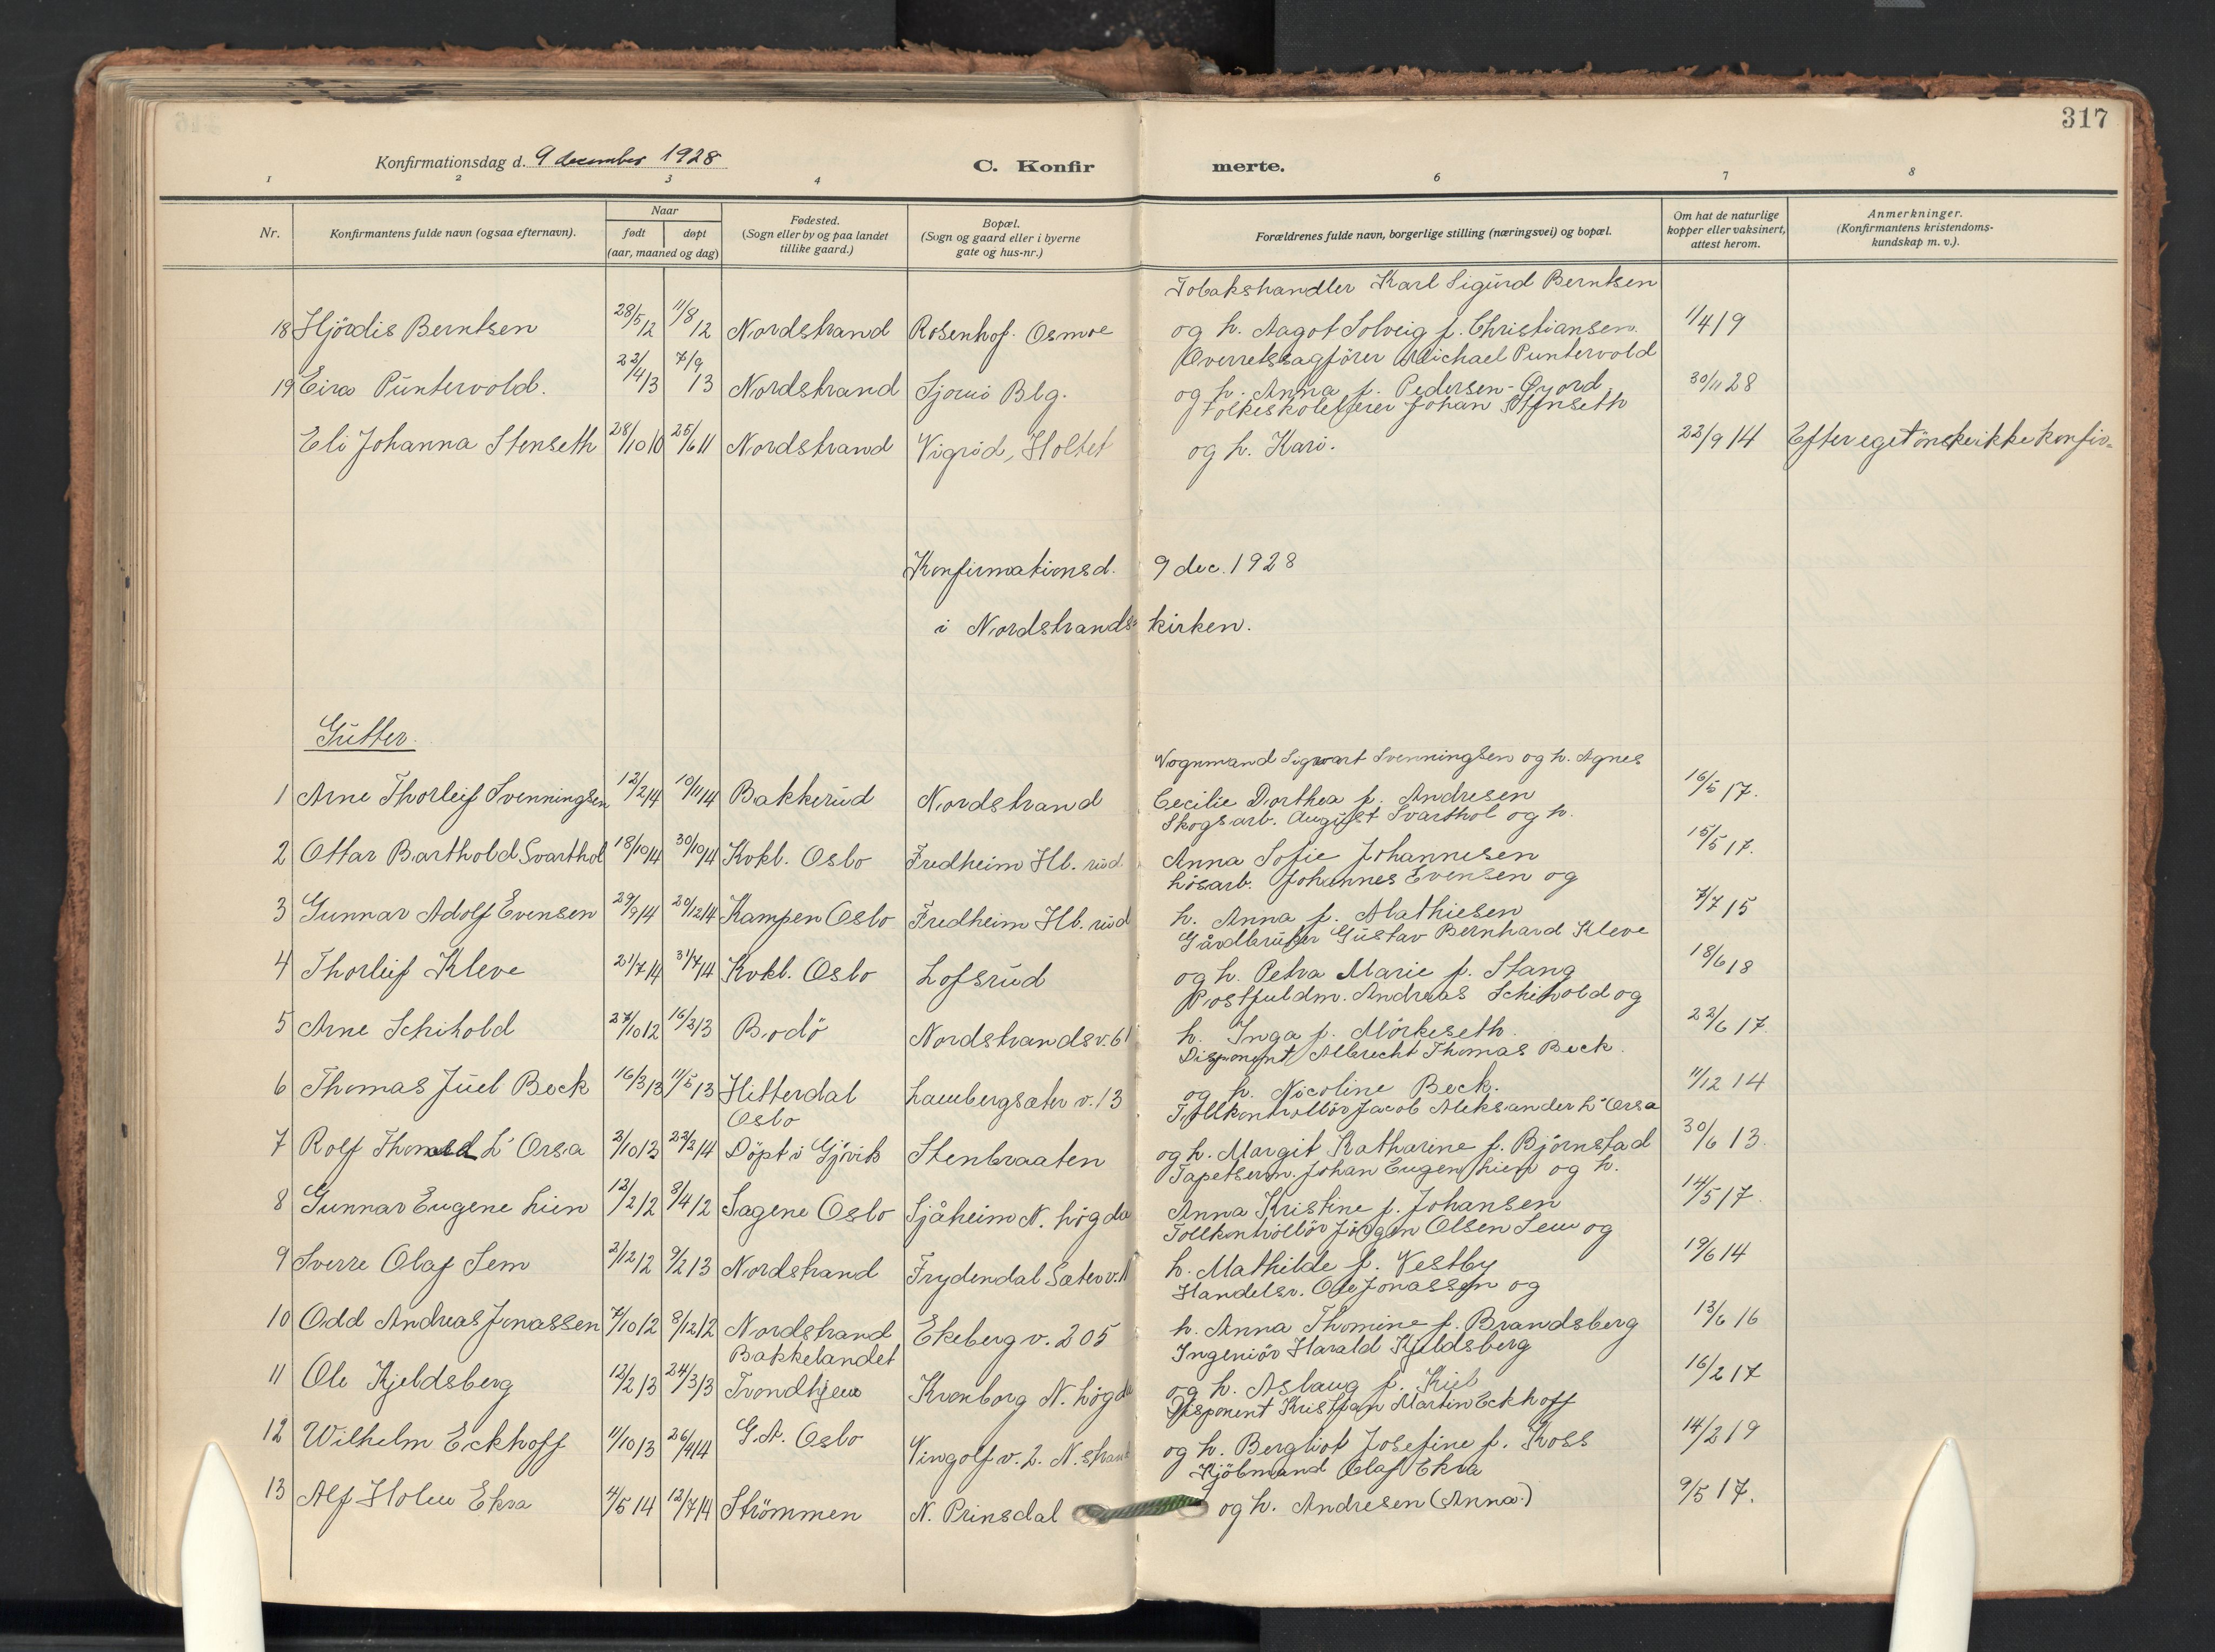 317
Konfirmationsdag d. 9 december 1928
C. Konfirmerte.
1 2 3 4 6 7 8
Nr.
Konfirmantens fulde navn (ogsaa efternavn).
Naar
født døpt
(aar, maaned og dag)
Fødested.
(Sogn eller by og paa landet
tillike gaard.)
Bopæl.
(Sogn og gaard eller i byerne
gate og hus-nr.)
Forældrenes fulde navn, borgerlige stilling (næringsvei) og bopæl.
Om hat de naturlige
kopper eller vaksinert,
attest herom.
Anmerkninger.
(Konfirmantens kristendoms-
kundskap m. v.).
Tobakshandler Karl Sigurd Berntsen
18 Hjördis Berntsen 28/5 12 11/8 12 Nordstrand Rosenhof. Osmoe og h. Aagot Solveig f. Christiansen. 1/4 19
Overretssagförer Michael Puntervold
19 Eira Puntervold. 22/4 13 7/9 13 Nordstrand Blg. og h. Anna f. Pedersen-Gyord. 30/11 28
Folkeskolelærer Johan Stenseth
Eli Johanna Stenseth 28/10 10 25/6 11 Nordstrand Vigrid, Holtet og h. Kari. 22/9 14 Efter eget önske ikke konfir=
Konfirmationsd. 9 dec. 1928
i Nordstrands kirken.
Gutter.
Vognmand Sigwart Svenningsen og h. Agnes
1 Arne Thorleif Svenningsen 12/2 14 10/11 14 Bakkerud Nordstrand Cecilie Dorthea f. Andresen 16/5 17.
Skogsarb. August Svarthol og h.
2 Ottar Barthold Svarthol 18/10 14 30/10 14 Kvkl. Oslo Fredheim Hb. rud Anna Sofie Johannesen 15/5 17.
Lösarb. Johannes Evensen og
3 Gunnar Adolf Evensen 29/9 14 20/12 14 Kampen Oslo Fredheim Hb. rud h. Anna f. Mathiesen 7/7 15
Gårdbruker Gustav Bernhard Kleve
4 Thorleif Kleve 21/7 14 31/7 14 Kvkl. Oslo Lofsrud og h. Petra Marie f. Stang 18/6 18
Postfuldm. Andreas Schihold og
5 Arne Schihold 27/10 12 16/2 13 Bodö Nordstrandsv. 61 h. Inga f. Mörkeseth. 22/6 17.
Disponent Albrecht Thomas Beck.
6 Thomas Juel Beck 16/3 13 11/5 13 Hitterdal Lambergsæter v. 13 og h. Nicoline Beck. 11/12 14
Tollkontrollör Jacob Aleksander L'Orsa
Oslo
7 Rolf L'Orsa 2/10 13 22/2 14 Döpt i Gjövik Stenbraaten og h. Margit Katharine f. Björnstad 30/6 13.
Tapetserm. Johan Eugen Lien og h.
8 Gunnar Eugene Lien 12/2 12 8/4 12 Sagene Oslo Sjåheim N. högda Anna Kristine f. Johansen 14/5 17.
Tollkontrollör Jörgen Olsen Sem og
9 Sverre Olaf Sem 2/12 12 9/2 13 Nordstrand Frydendal Sæterv. h. Mathilde f. Vestby 19/6 14
Handelsr. Ole Jonassen og
10 Odd Andreas Jonassen 7/10 12 8/12 12 Nordstrand Ekeberg v. 205 h. Anna Thomine f. Brandsberg 13/6 16
Ingeniör Harald Kjeldsberg
Bakkelandet
11 Ole Kjeldsberg 12/2 13 24/3 13 Trondhjem Kronborg N. högda og h. Aslaug f. Kiel 16/2 17
Disponent Kristian Martin Eckhoff
12 Wilhelm Eckhoff 11/10 13 26/4 14 G.A. Oslo Vingolf v. 2. N. strand og h. Bergliot Josefine f. Koss 14/2 19
Kjöbmand Olaf Ekra
13 Alf Holm Ekra 4/5 14 12/7 14 Strömmen N. Prinsdal og h. Andresen (Anna.) 9/5 17.